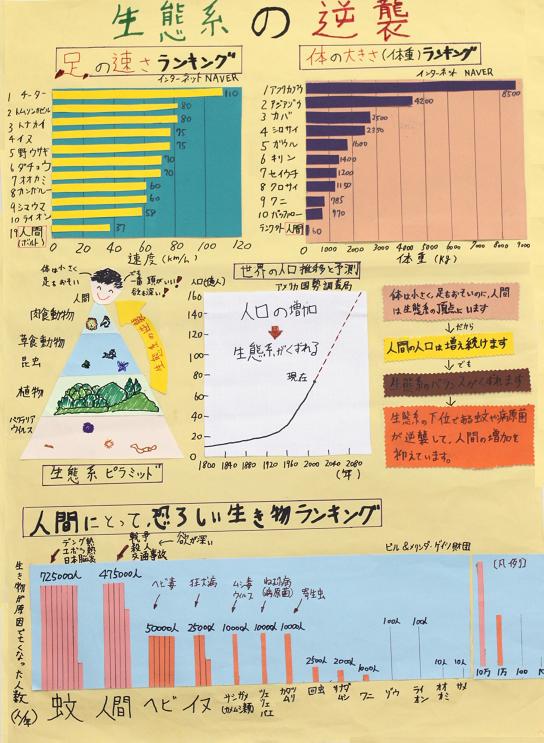 生態系の逆襲
足の速さランキング
インターネット NAVER
1 チーター 110
2 トムソンガゼル 80
3 トナカイ 80
4 イヌ 75
5 野ウサギ 75
6 ダチョウ 70
7 オオカミ 70
8 カンガルー 60
9 シマウマ 60
10 ライオン 58
19 人間(ボルト) 37
0 20 40 60 80 100 120
速度(km/h)
体の大きさ(体重)ランキング
インターネット NAVER
1 アフリカゾウ 8500
2 アジアゾウ 4200
3 カバ 2500
4 シロサイ 2350
5 ガウル 1600
6 キリン 1400
7 セイウチ 1200
8 クロサイ 1150
9 ワニ 985
10 バッファロー 970
ランク外 人間 60
0 1000 2000 3000 4000 5000 6000 7000 8000 9000
体重(Kg)
体は小さく
足もおそい
でも
一番頭がいい!
欲も深い!
人間
肉食動物
草食動物
昆虫
植物
バクテリア
ウイルス
生態系ピラミッド
世界の人口推移と予測
アメリカ国勢調査局
人口(億人)
160
140
120
100
80
60
40
20
0
人口の増加
生態系がくずれる
現在
1800 1840 1880 1920 1960 2000 2040 2080
(年)
体は小さく、足もおそいのに、人間は生態系の頂点にいます
だから
人間の人口は増え続けます
でも
生態系のバランスがくずれます
生態系の下位である蚊や病原菌が逆襲して、人間の増加を抑えています。
人間にとって、恐ろしい生き物ランキング
ビル&メリンダ・ゲイツ財団
生き物が原因で亡くなった人数(人/年)
デング熱
エボラ熱
日本脳炎
戦争
殺人
交通事故
欲が深い
ヘビ毒
狂犬病
ねむり病
(病原菌)
寄生虫
725000人
475000人
50000人
25000人
10000人
10000人
10000人
2500人
2000人
1000人
100人
100人
10人
10人
蚊
人間
ヘビ
イヌ
サシガメ
(カメムシ類)
ツェツェバエ
カタツムリ
回虫
サナダムシ
ワニ
ゾウ
ライオン
オオカミ
サメ
[凡例]
10万
1万
100
10